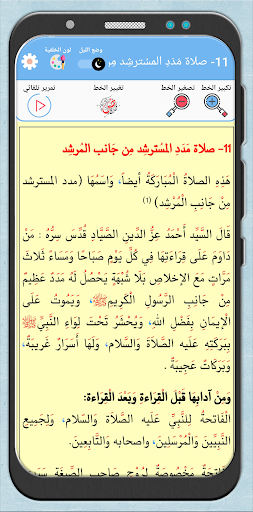 11- صلاة مَدَدِ المسْترشِد مِن
وضع الليل
لون الخلفية
تمرير تلقائي
تغيير الخط
تصغير الخط
تكبير الخط
11- صلاة مَدَدِ المُسْترشِد مِن جَانب المُرشِد
هَذِهِ الصلاةُ المُبَارَكَةُ أيضاً، وَاسمُهَا (مدد المسترشد
مِن جَانِبِ الْمُرْشِد) (١)
قَالَ السَّيِّد أَحْمَدُ عِزُّ الدِّينِ الصَّيَّادِ قُدِّسَ سِرُّهُ : مَنْ
دَاوَمَ عَلَى قِرَاءَتِهَا فِي كُلِّ يَوْمٍ صَبَاحًا وَمَسَاءً ثَلَاثَ
مَرَّاتٍ مَعَ الإخلاصِ بَلَا شُبْهَةٍ يَحْصُلُ لَهُ مَدَدٌ عَظِيمٌ
مِنْ جَانِبِ الرَّسُولِ الْكَرِيمِ ﷺ، وَيَمُوتُ عَلَى
الْإِيمَانِ بِفَضْلِ اللَّهِ، وَيُحْشَرُ تَحْتَ لِوَاءِ النَّبِيِّ ﷺ
بِبَرَكَتِهِ عَلَيْهِ الصَّلَاةَ وَالسَّلَام، وَلَهَا أَسْرَارٌ غَرِيبَةٌ،
وَبَرَكَاتٌ عَجِيبَةٌ .
وَمِنْ آدابِهَا قَبْلَ الْقِرَاءَةِ وَبَعْدَ الْقِرَاءَةِ:
الْفَاتِحَةُ لِلنَّبِيِّ عَلَيه الصَّلَاة وَالسَّلَام، وَلِجَمِيعِ
النَّبِيِّينَ وَالْمُرْسَلِينَ، واصحابه وَالتَّابِعِينَ.
الْفَاتِحَة مَخْصُوصَةٌ لِرُوْحِ صَاحِبِ الصِّيغَة سَيِّد